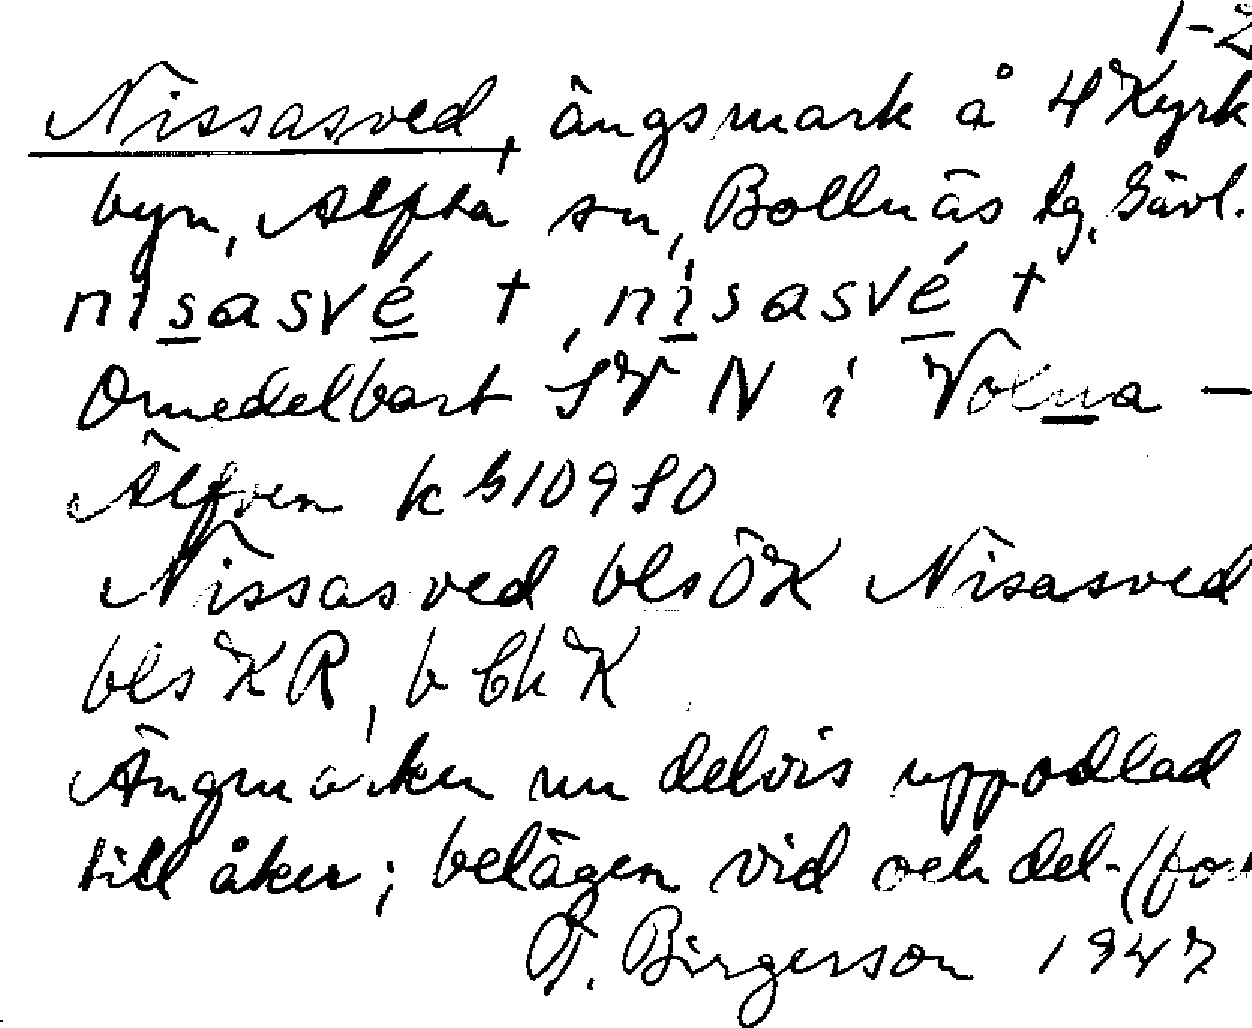 1-2
Nissasved, ängsmark å 4 Kyrk
byn, Alfta sn, Bollnäs tg, Gävl.
nisasvé †, nisasvé †
Omedelbart SV N i Voxna -
Älfven k G10980
Nissasved bls ÖK Nisasved
bls KR, b Ch K
Ängmarken nu delvis uppodlad
till åker; belägen vid och del- (for
F. Birgerson 1947